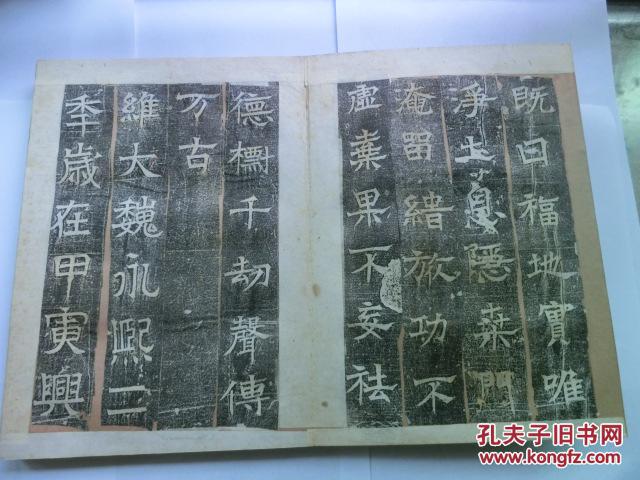 既曰福地實唯
淨土息隱桒門
菴留緇旅功不
虛棄果不妄祛
德樹千劫聲傳
万古
維大魏永熙二
秊歲在甲寅興
孔夫子旧书网
www.kongfz.com